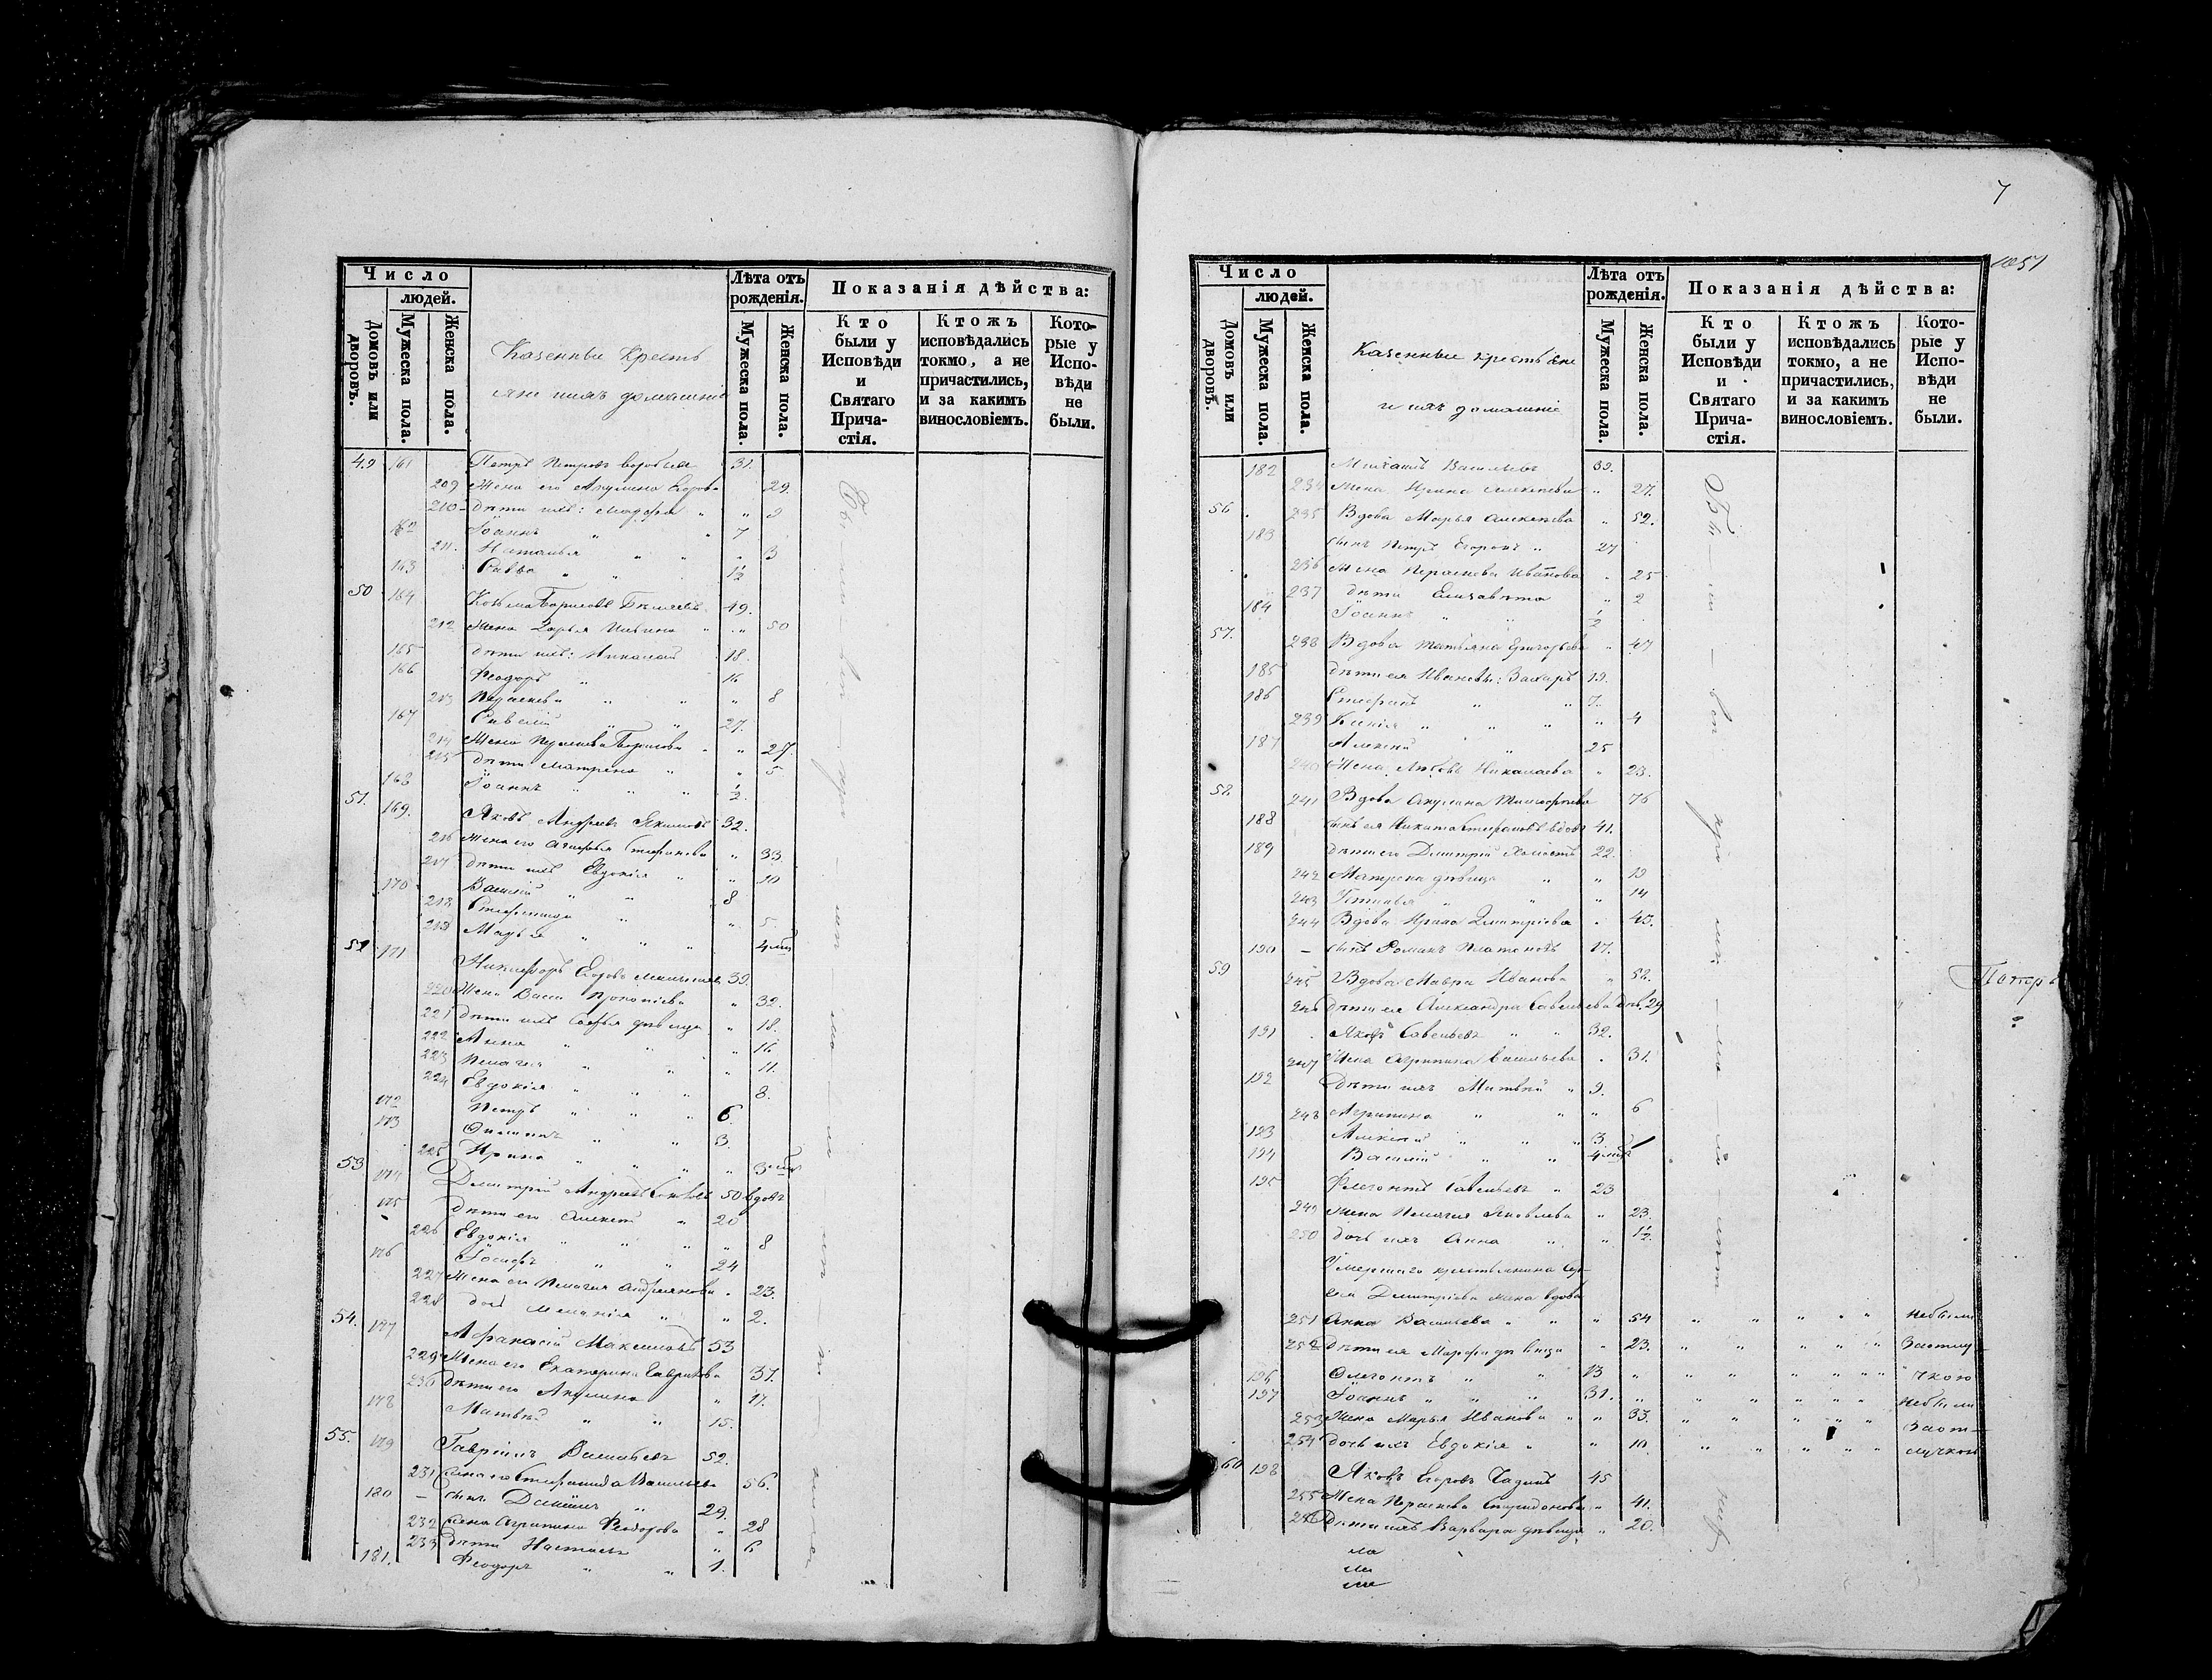 Число
людей.
Домовъ или дворовъ.
Мужеска пола.
Женска пола.
Казенные крестьяне и ихъ домашніе
Лѣта отъ рожденія.
Мужеска пола.
Женска пола.
Показанія дѣйства:
Кто были у Исповѣди и Святаго Причастія.
Ктожъ исповѣдались токмо, а не причастились, и за какимъ винословіемъ.
Которые у Исповѣди не были.
49 161 Петръ Петровъ 31.
209 Жена его Акулина Егорова 29.
210 дѣти ихъ: " 9
162 Іоаннъ " " 7
211. Наталья " " " 3
163 Савва " " 1/2
50 164 Козьма Борисовъ 49.
212 Жена Дарья Ильина " " 50
165 дѣти ихъ: Николай 18.
166 Ѳеодоръ " 16
213 Параскева " " " 8
167 Савелій " " 27.
214 Жена Параскева Борисова " " 27.
215 дѣти Матрена " " 5
168 Іоаннъ " " " 1/2.
51. 169. Яковъ Андреевъ 32.
216 Жена его Агафья Стефанова " 33
217 дѣти ихъ Евдокія " " 10
170 Василій " " 8
218 Стефанида " " 5.
219 Марья " " " 4 мц
52 171 Никифоръ Егоровъ 39.
220 Жена Васса Прокопіева " 32.
221 дѣти ихъ Софья дѣвица " 18.
222 Анна " " " 16
223 Пелагея " " " 11.
224 Евдокія " " " 8.
172 Петръ " " " 6
173 " " 3.
225 Ирина " " " " 3 мц
53 174 Дмитрій Андреевъ 50 вдовъ
175 дѣти его Алексѣй " 20
226 Евдокія " " " " 8
176 Іосифъ " " 24
227 Жена его Пелагея Андреянова " 23.
228 дочь Меланія " " 2.
54. 177 Аѳанасій Максимовъ 53
229 Жена его Екатерина Гаврилова 37.
230 дѣти его Акулина " 17.
178 Матвѣй " " 15.
55. 179 Гавріилъ Васильевъ 52.
231 Жена его Стефанида Васильева 56.
180 — сынъ Даніилъ " 29.
232 Жена Агрипина Ѳеодорова " 28
233 дѣти Настасья " 6
181. Ѳеодоръ " " 1.
7
1051
Число
людей.
Домовъ или дворовъ.
Мужеска пола.
Женска пола.
Казенные крестьяне
и ихъ домашніе
Лѣта отъ рожденія.
Мужеска пола.
Женска пола.
Показанія дѣйства:
Кто были у Исповѣди и Святаго Причастія.
Ктожъ исповѣдались токмо, а не причастились, и за какимъ винословіемъ.
Которые у Исповѣди не были.
182 Михаилъ Васильевъ 39.
234 Жена Ирина Алексѣева " 27.
56 235 Вдова Марья Алексѣева " 52.
183 сынъ Петръ Егоровъ " 27
236 Жена Параскева Иванова " 25
237 дѣти Елизавета " 2
184 Іоаннъ " " 1/2
57. 238 Вдова Татьяна Григорьева " 47
185 дѣти ея Ивановы: Захаръ 19.
186 Стефанъ " " 7.
239 Ксенія " " " " 4
187 Алексѣй " 25
240 Жена Любовь Николаева " 23.
58 241 Вдова Акулина Тимофеева 76
188 сынъ ея Никита Стефановъ вдовъ 41.
189 дѣти его Дмитрій холостъ 22.
242 Матрена дѣвица " " 19
243 Устинья " " " 14
244 Вдова Ирина Дмитріева " 43.
190 — сынъ Романъ Платоновъ 17.
59 245 Вдова Мавра Иванова " 52.
246 дѣти ея Александра Савельева дѣв. 29
191 Яковъ Савельевъ " " 32.
247 Жена Агрипина Васильева " 31.
192 дѣти ихъ Матвѣй " 9.
248 Агрипина " " " 6
193 Алексѣй " " " 3
194 Василій " " 4 мц
195 Флегонтъ Савельевъ " 23
249 Жена Пелагея Яковлева " 23.
250 дочь ихъ Анна " " 1 1/2.
Умершаго крестьянина
Дмитріева жена вдова
251 Анна Васильева " " " 54 " " " " " Небыли
252 дѣти ея Марфа дѣвица " 23. " " " " " Заотлу-
196 Флегонтъ " " 13 " " " " " " " чкою
197 Іоаннъ " " " 31. " " " " " " Небыли
253 Жена Марья Иванова " " 33. " " " " " Заот-
254 дочь ихъ Евдокія " " 10. " " " " " лучкою
60 198 Яковъ Егоровъ 45
255 Жена Параскева Спиридонова " 41.
256 дѣти ихъ Варвара дѣвица " 20.